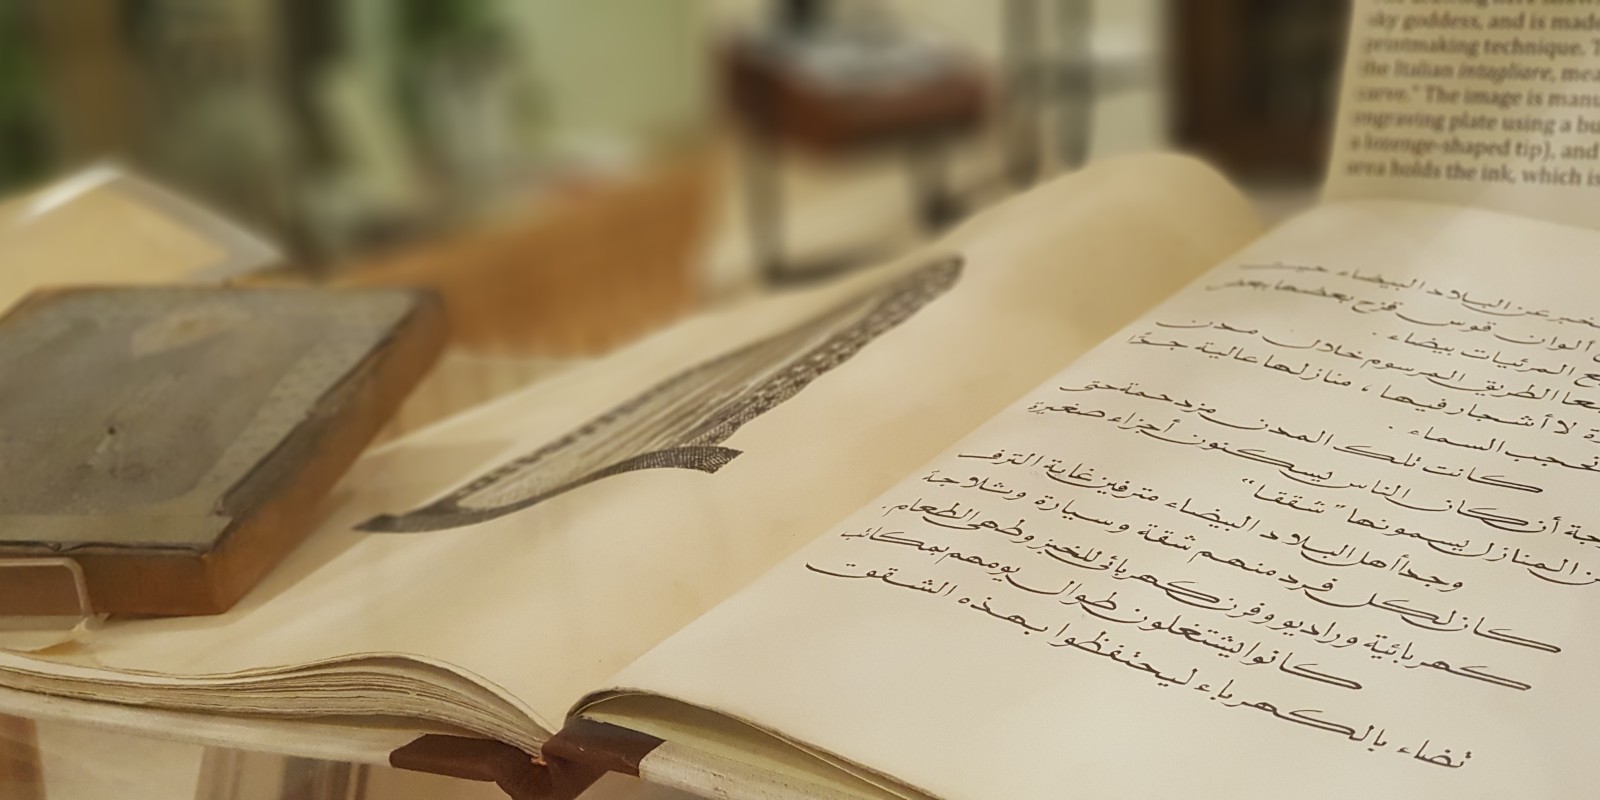 sky goddess, and is made
printmaking technique.
the Italian intagliare, mea
curve." The image is manu
engraving plate using a bu
a lozenge-shaped tip), and
area holds the ink, which is
عن البلاد البيضاء حين
ألوان قوس قزح بعضها بعض
المرئيات بيضاء.
الطريق المرسوم خلال مدن
لا أشجار فيها، منازلها عالية جدًا
تحجب السماء.
كانت تلك المدن مزدحمة حتى
أن كان الناس يسكنون أجزاء صغيرة
المنازل يسمونها "شققا"
وجد أهل البلاد البيضاء مترفين غاية الترف
كان لكل فرد منهم شقة وسيارة وثلاجة
كهربائية وراديو وفرن كهربائى للخبز وطهى الطعام.
كانوا يشتغلون طوال يومهم بمكاتب
تضاء بالكهرباء ليحتفظوا بهذه الشقق